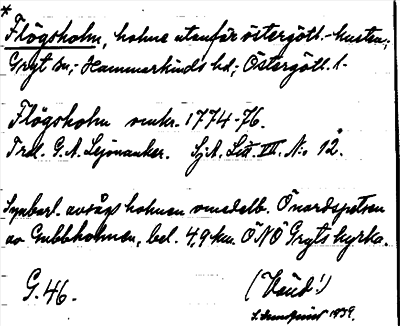 *
Flögsholm, holme utanför östergötl.-kusten;
Gryt sn,- Hammarkinds hd; Östergötl. l-
Flögsholm omkr. 1774-76.
Trol. G. A. Lejonanker. Sj.A. Lit. VIII. No. 12.
Synbarl. avsågs holmen omedelb. Ö nordspetsen
av Gubbholmen, bel. 4,9 km. ÖNÖ Gryts kyrka.
G. 46.
1939.